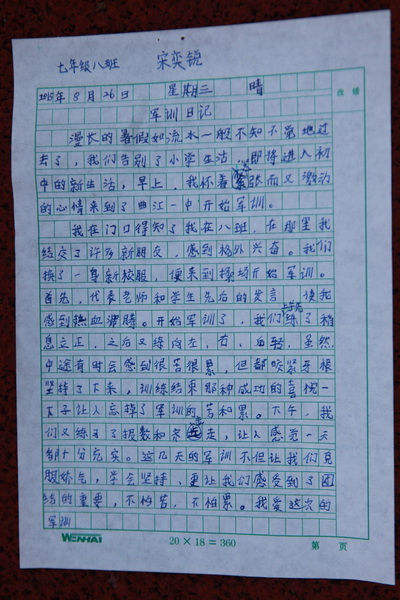 七年级八班 宋奕锐
2015年8月26日 星期三 晴
批 修
军训日记
漫长的暑假如流水一般不知不觉地过
去了,我们告别了小学生活,即将进入初
中的新生活,早上,我怀着紧张而又激动
的心情来到了曲江一中开始军训。
我在门口得知了我在八班,在那里我
结交了许多新朋友,感到格外兴奋。我们
换了一身新校服,便来到操场开始军训。
首先,代表老师和学生先后的发言,使我
感到热血沸腾。开始军训了,我们先练了稍
息立正,之后又练向左,右,后转,虽然
中途有时会感到很苦很累,但都咬紧牙根
坚持了下来,训练结束那种成功的喜悦一
下子让人忘掉了军训的苦和累。下午,我
们又练习了报数和齐步走,让人感觉一天
都十分充实。这几天的军训不但让我们克
服娇气,学会坚持,更让我们感受到了团
结的重要,不怕苦,不怕累。我爱这次的
军训
WENHAI 20×18=360 第 页